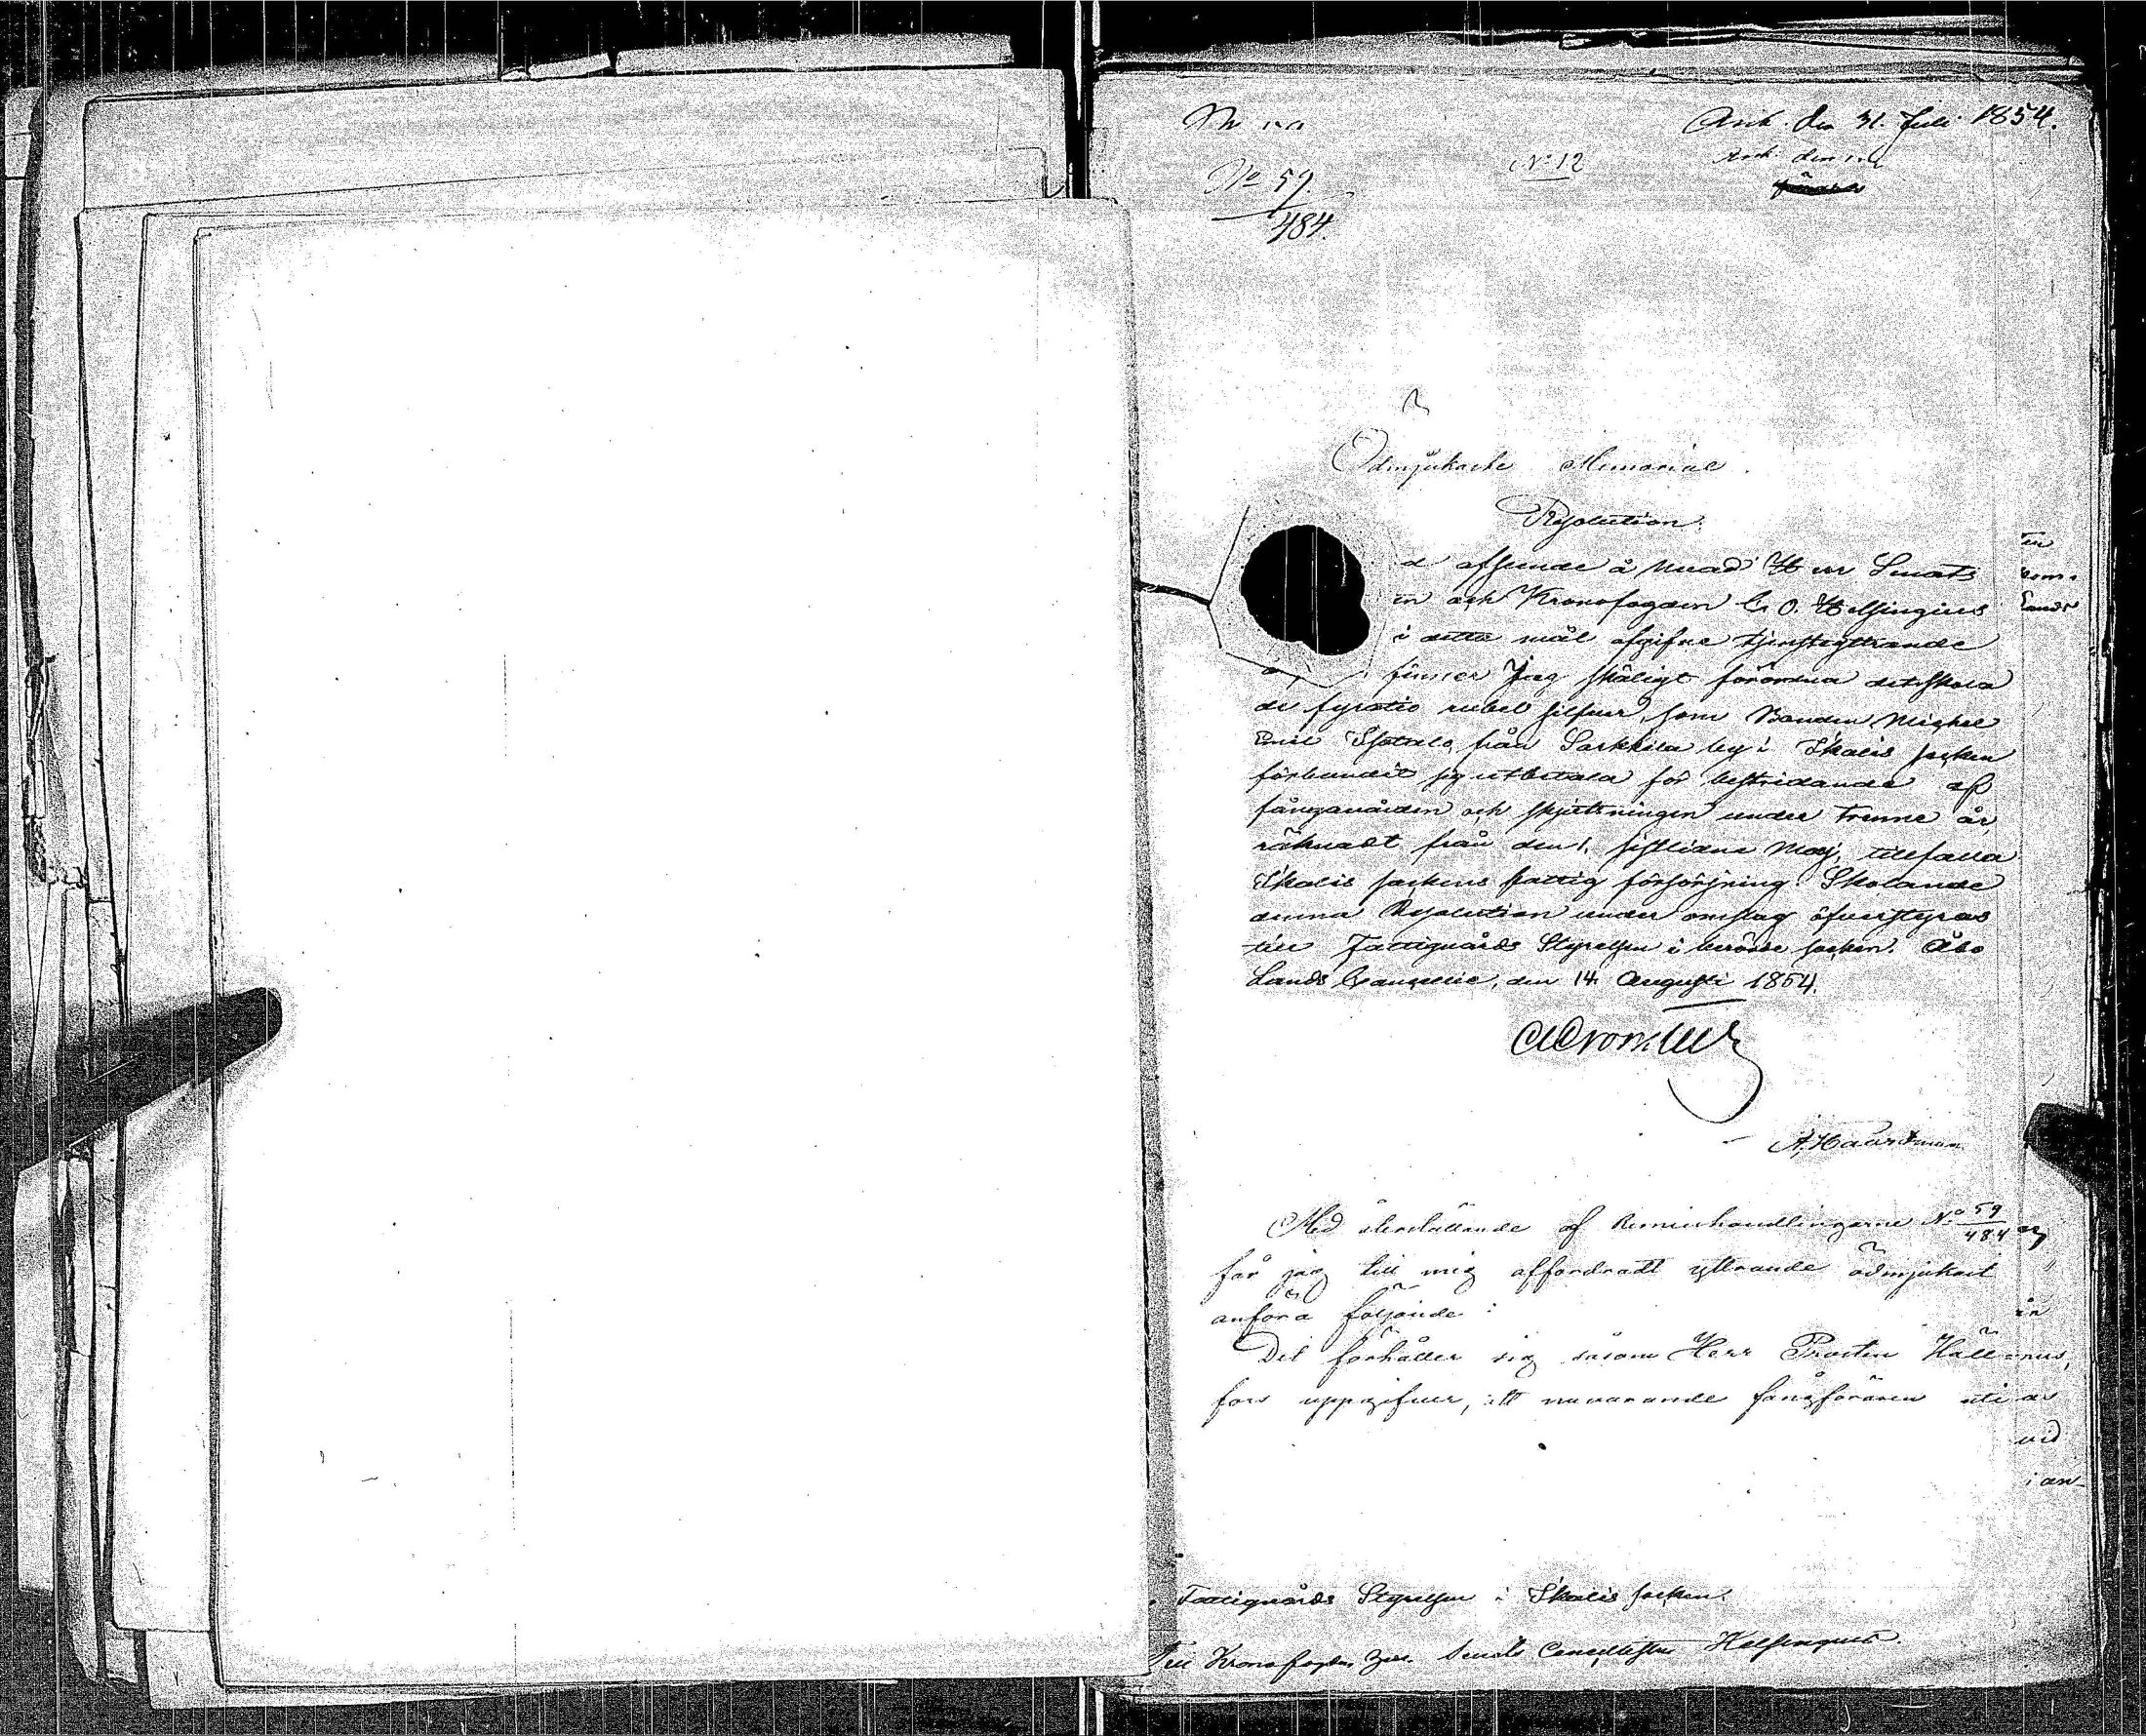 Ank. den 31. Juli 1854.
Ank. den
No 12
No 59.
484.
Ödmjukaste Memorial.
Resolution.
afseende å hvad Herr Senats
en och Kronofogden C. O. Helsingius
i detta mål afgifne tjensteyttrande
finner Jag skäligt förordna det skola
de fyratio rubel silfver, som Bonden Michel
från Sarkkila by i Ikalis socken
förbundit sig utbetala för bestridande af
fångevården och skjutsningen under trenne år,
räknadt från den 1. sistlidne Maj, tillfalla
Ikalis sockens fattig försörjning. Skolande
denna Resolution under omslag öfverstyras
till Fattigvårds Styrelsen i berörde socken. Åbo
Lands Cancellie, den 14 Augusti 1854.
A. Haartman
Med återställande af Remisshandlingarne No 59
484
får jag till mig affordradt yttrande ödmjukast
anföra följande:
Det förhåller sig såsom Herr Prosten Häll-
fors uppgifver, att nuvarande fångföraren uti
vid
i an-
Fattigvårds Styrelsen i Ikalis socken.
Till Kronofogden Senats Cancellisten Helsingius.